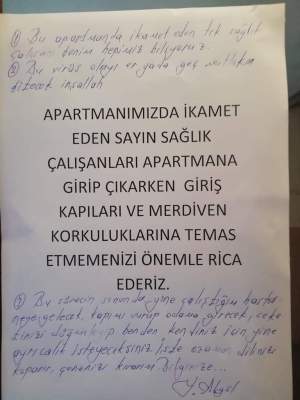 ① Bu apartmanda ikamet eden tek sağlık
çalışanı benim hepimiz biliyoruz.
② Bu virüs olayı er yada geç mutlaka
bitecek inşallah
APARTMANIMIZDA İKAMET
EDEN SAYIN SAĞLIK
ÇALIŞANLARI APARTMANA
GİRİP ÇIKARKEN GİRİŞ
KAPILARI VE MERDİVEN
KORKULUKLARINA TEMAS
ETMEMENİZİ ÖNEMLE RİCA
EDERİZ.
③ Bu sürecin sonunda yine çalıştığım hasta-
neye gelecek, kapımı vurup odama girecek, ceke-
tinizi benden kendiniz için yine
ayrıcalık isteyeceksiniz. İşte o zaman dilinizi
koparır, çenenizi kırarım bilginize...